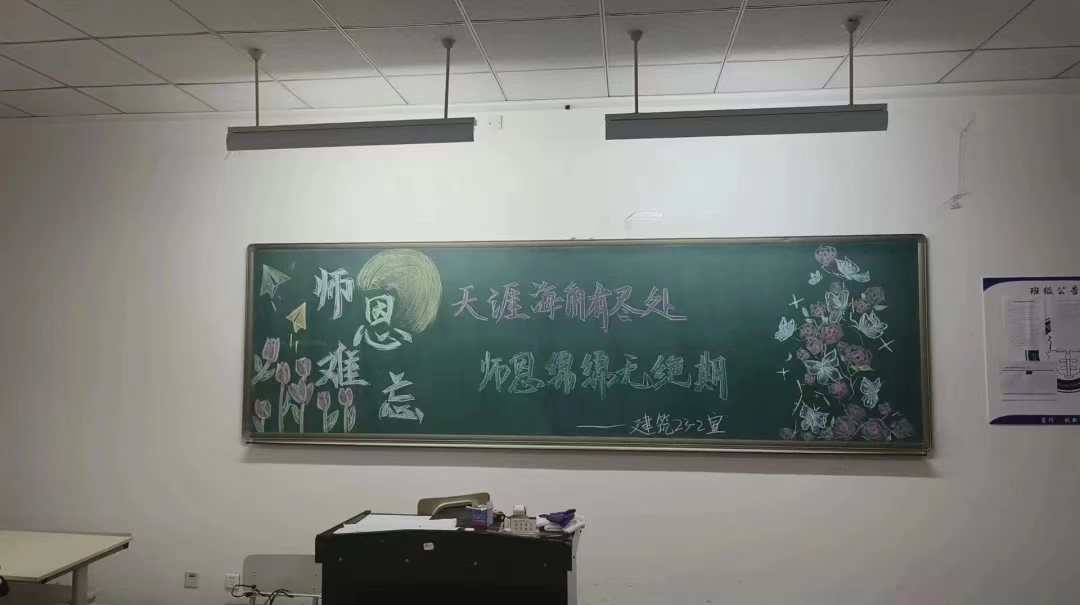 师恩难忘
天涯海角有尽处
师恩绵绵无绝期
——建筑23-2宣
班级公告